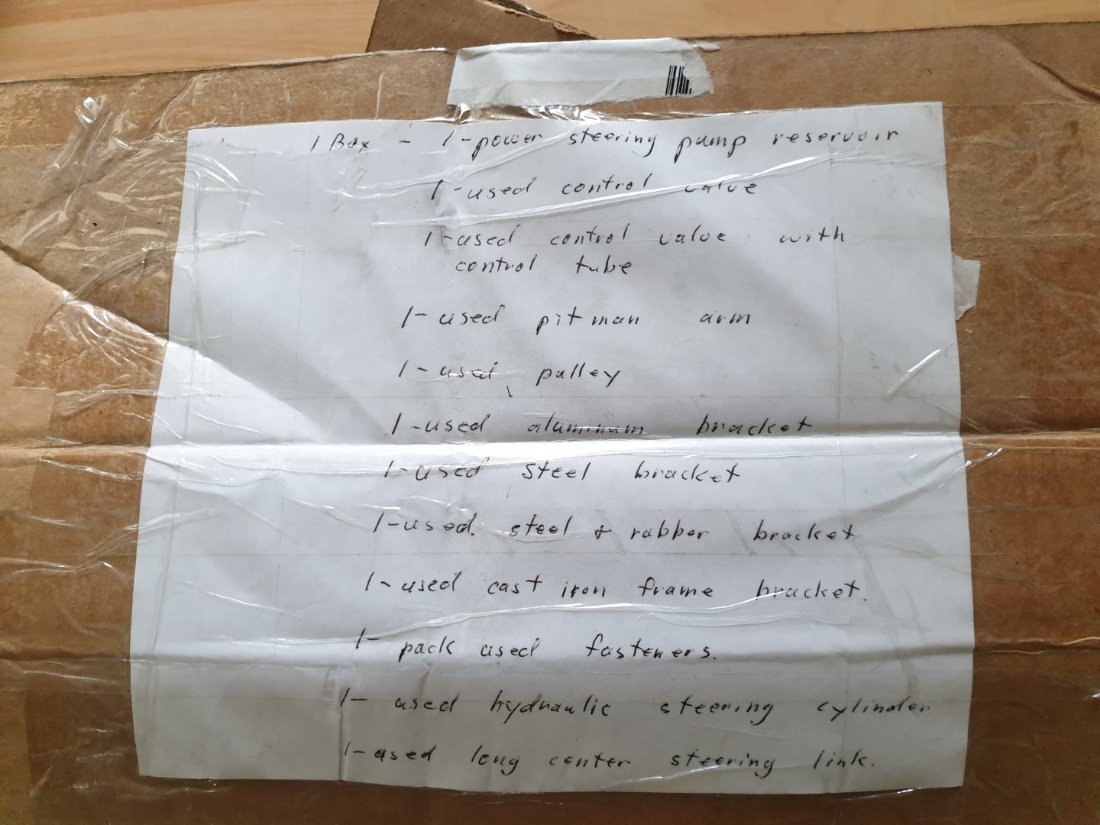 1 Box - 1-power steering pump reservoir
1-used control valve
1-used control valve with
control tube
1-used pitman arm
1-used pulley
1-used aluminum bracket
1-used steel bracket
1-used steel + rubber bracket
1-used cast iron frame bracket.
1- pack used fasteners.
1- used hydraulic steering cylinder
1-used long center steering link.